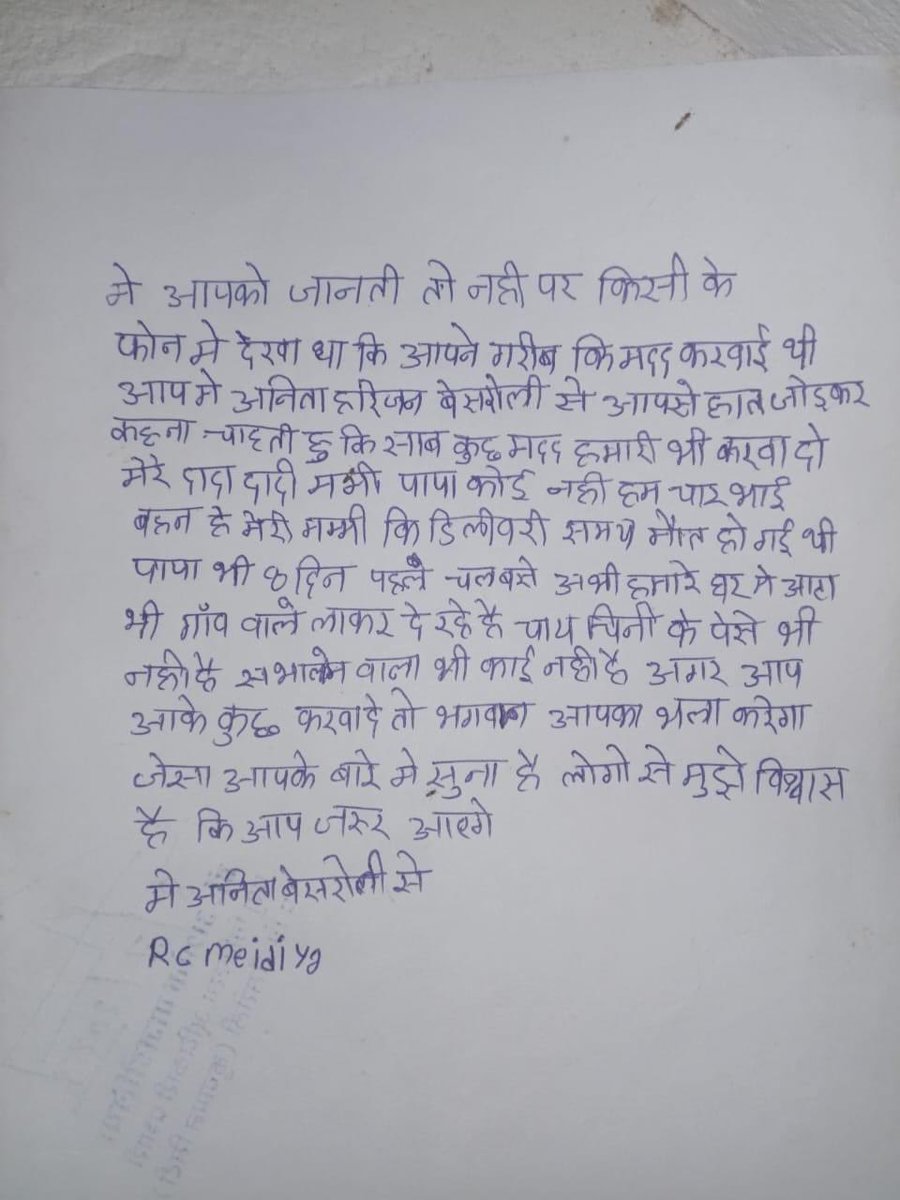 मे आपको जानती तो नही पर किसी के
फोन मे देखा था कि आपने गरीब कि मदद करवाई थी
आप मे अनिता हरिजन बेसरोली से आपसे हात जोड़कर
कहना चाहती हु कि साब कुछ मदद हमारी भी करवा दो
मेरे दादा दादी मम्मी पापा कोई नही हम चार भाई
बहन हे मेरी मम्मी कि डिलीवरी समय मौत हो गई थी
पापा भी 8 दिन पहले चलबसे अभी हमारे घर मे आटा
भी गाँव वाले लाकर दे रहे है चाय चिनी के पेसे भी
नही है सभालने वाला भी काई नही है अगर आप
आके कुछ करवादे तो भगवान आपका भला करेगा
जेसा आपके बारे मे सुना है लोगो से मुझे विश्वास
है कि आप जरुर आएगे
मे अनिता बेसरोली से
RC meidiya